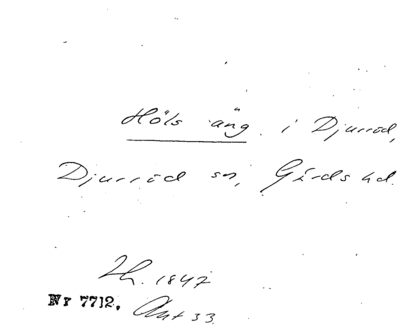 Höls äng i Djurröd,
Djurröd sn, Gärds hd.
Lh. 1847
Nr 7712. Akt 33